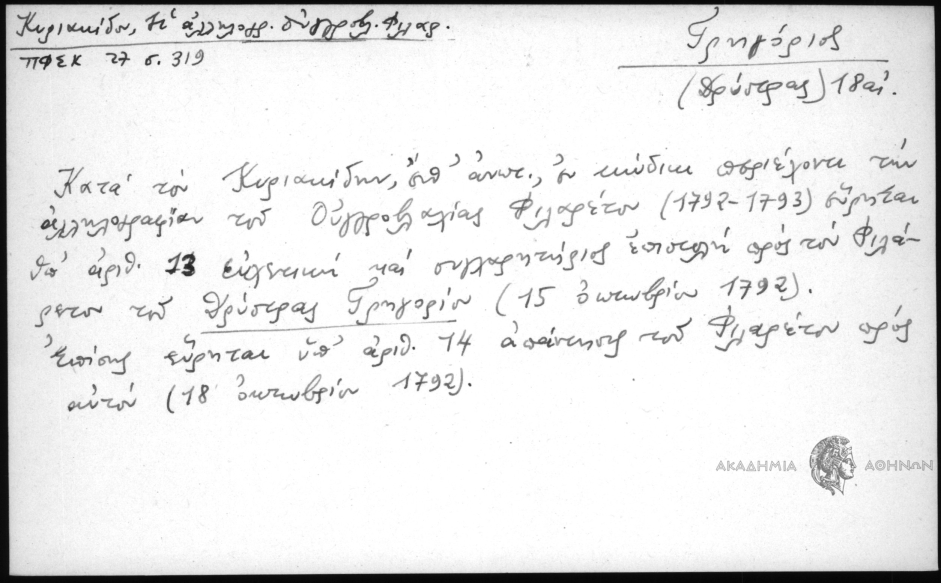 Κυριακίδου, Ἡ ἀλληλογρ. Οὐγγροβλ. Φιλαρ.
ΠΦΣΚ 27 σ. 319
Γρηγόριος
(Δρύστρας) 18 αἰ.
Κατά τόν Κυριακίδην, ἀνωτ., ἐν κώδικι περιέχοντι τήν
ἀλληλογραφίαν τοῦ Οὐγγροβλαχίας Φιλαρέτου (1792-1793) εὕρηται
ὑπ' ἀριθ. 13 εὐχετική καί συγχαρητήριος ἐπιστολή πρός τόν Φιλά-
ρετον τοῦ Δρύστρας Γρηγορίου (15 ὀκτωβρίου 1792).
Ἐπίσης εὕρηται ὑπ' ἀριθ. 14 ἀπάντησις τοῦ Φιλαρέτου πρός
αὐτόν (18 ὀκτωβρίου 1792).
ΑΚΑΔΗΜΙΑ ΑΘΗΝΩΝ